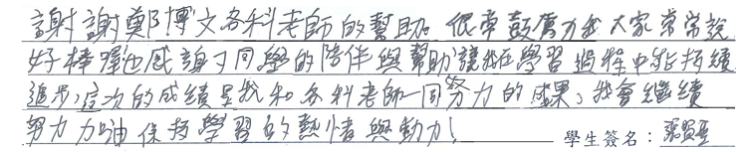 謝謝鄭博文各科老師的幫助 很常鼓勵力我 大家常常說
好棒喔也感謝了同學的陪伴與幫助讓我在學習過程中能持續
進步,這次的成績是我和各科老師一同努力的成果,我會繼續
努力加油保持學習的熱情與動力!
學生簽名: